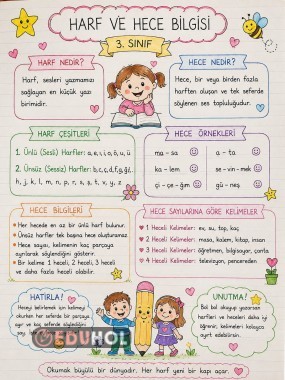 HARF VE HECE BİLGİSİ
3. SINIF
HARF NEDİR?
Harf, sesleri yazmamızı
sağlayan en küçük yazı
birimidir.
HECE NEDİR?
Hece, bir veya birden fazla
harften oluşan ve tek seferde
söylenen ses topluluğudur.
HARF ÇEŞİTLERİ
1. Ünlü (Sesli) Harfler: a, e, ı, i, o, ö, u, ü
2. Ünsüz (Sessiz) Harfler: b, c, ç, d, f, g, ğ,
h, j, k, l, m, n, p, r, s, ş, t, v, y, z
HECE ÖRNEKLERİ
ma - sa
a - ta
ka - lem
se - vin - mek
çi - çe - ğim
gü - neş
HECE BİLGİLERİ
Her hecede en az bir ünlü harf bulunur.
Ünsüz harfler tek başına hece oluşturamaz.
Hece sayısı, kelimenin kaç parçaya
ayrılarak söylendiğini gösterir.
Bir kelime 1 heceli, 2 heceli, 3 heceli
ve daha fazla heceli olabilir.
HECE SAYILARINA GÖRE KELİMELER
1 Heceli Kelimeler: ev, su, top, kaç
2 Heceli Kelimeler: masa, kalem, kitap, insan
3 Heceli Kelimeler: öğretmen, arkadaş, çiçeğim
4 Heceli Kelimeler: televizyon, pencereden
HATIRLA!
Heceyi belirlemek için kelimeyi
okurken her seferde bir parçaya
ayır ve kaç seferde söylediğini
say.
UNUTMA!
Bol bol okuyup yazarsan
harfleri ve heceleri daha iyi
öğrenir, kelimeleri kolayca
ayırt edebilirsin.
EDUHOL
Okumak büyülü bir dünyadır. Her harf yeni bir kapı açar.